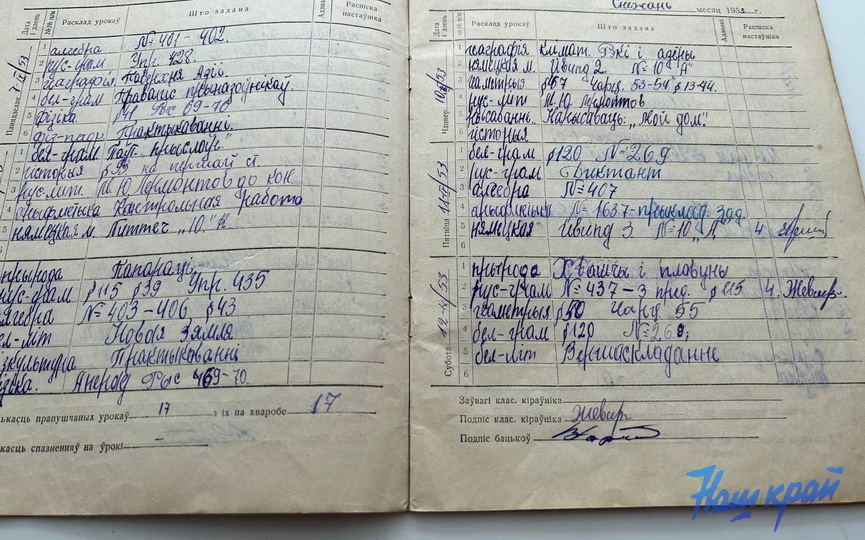 Дата і дзень
№№ п/п
Расклад урокаў
Што задана
Адзнакі
Распіска настаўніка
Панядзелак
1 алгебра №401-402.
2 рус-грам Упр. 428.
3 геаграфія Паверхня Азіі.
4 бел-грам Правапіс прыназоўнікаў.
5 фізіка Рыс 69-70
Практыкаванні.
1 бел-грам
2 гісторыя
3 рус-літ. М. Ю. Лермонтов до кон.
4 арыфметыка Кантрольная работа
5 нямецкая м.
6
прырода Папараці.
рус-грам §115 §39 Упр. 435
алгебра №403-406 §43
бел-літ Новая зямля
фізкультура Практыкаванні
фізіка. Рыс 469-70.
колькасць прапушчаных урокаў 17 з іх па хваробе 17
колькасць спазненняў на ўрокі –
Снежань месяц 1953 г.
Дата і дзень
№№ п/п
Расклад урокаў
Што задана
Адзнакі
Распіска настаўніка
Чацвер
1 геаграфія Клімат. Рэкі і азёры
2 нямецкая м. Існпд 2. №10 "А"
3 геаметрыя §67 Чарц. 53-54 §13-14.
4 рус-літ М. Ю. Лермонтов
5 "Мой дом".
6 гісторыя
Пятніца
1 бел-грам §120 №269
2 рус-грам Диктант
3 алгебра №407
4 арыфметыка №1637-прыклад. зад.
5 нямецкая 3 №10 "Д" 4
6
Субота 12-XII 53
1 прырода Хвашчы і плавуны
2 рус-грам №437-3 пред. §115 4.
3 геаметрыя §40 Чарц. 55
4 бел-грам §120 №269;
5 бел-літ Вершаскладанне
6
Заўвагі клас. кіраўніка
Подпіс клас. кіраўніка
Подпіс бацькоў
Наш край